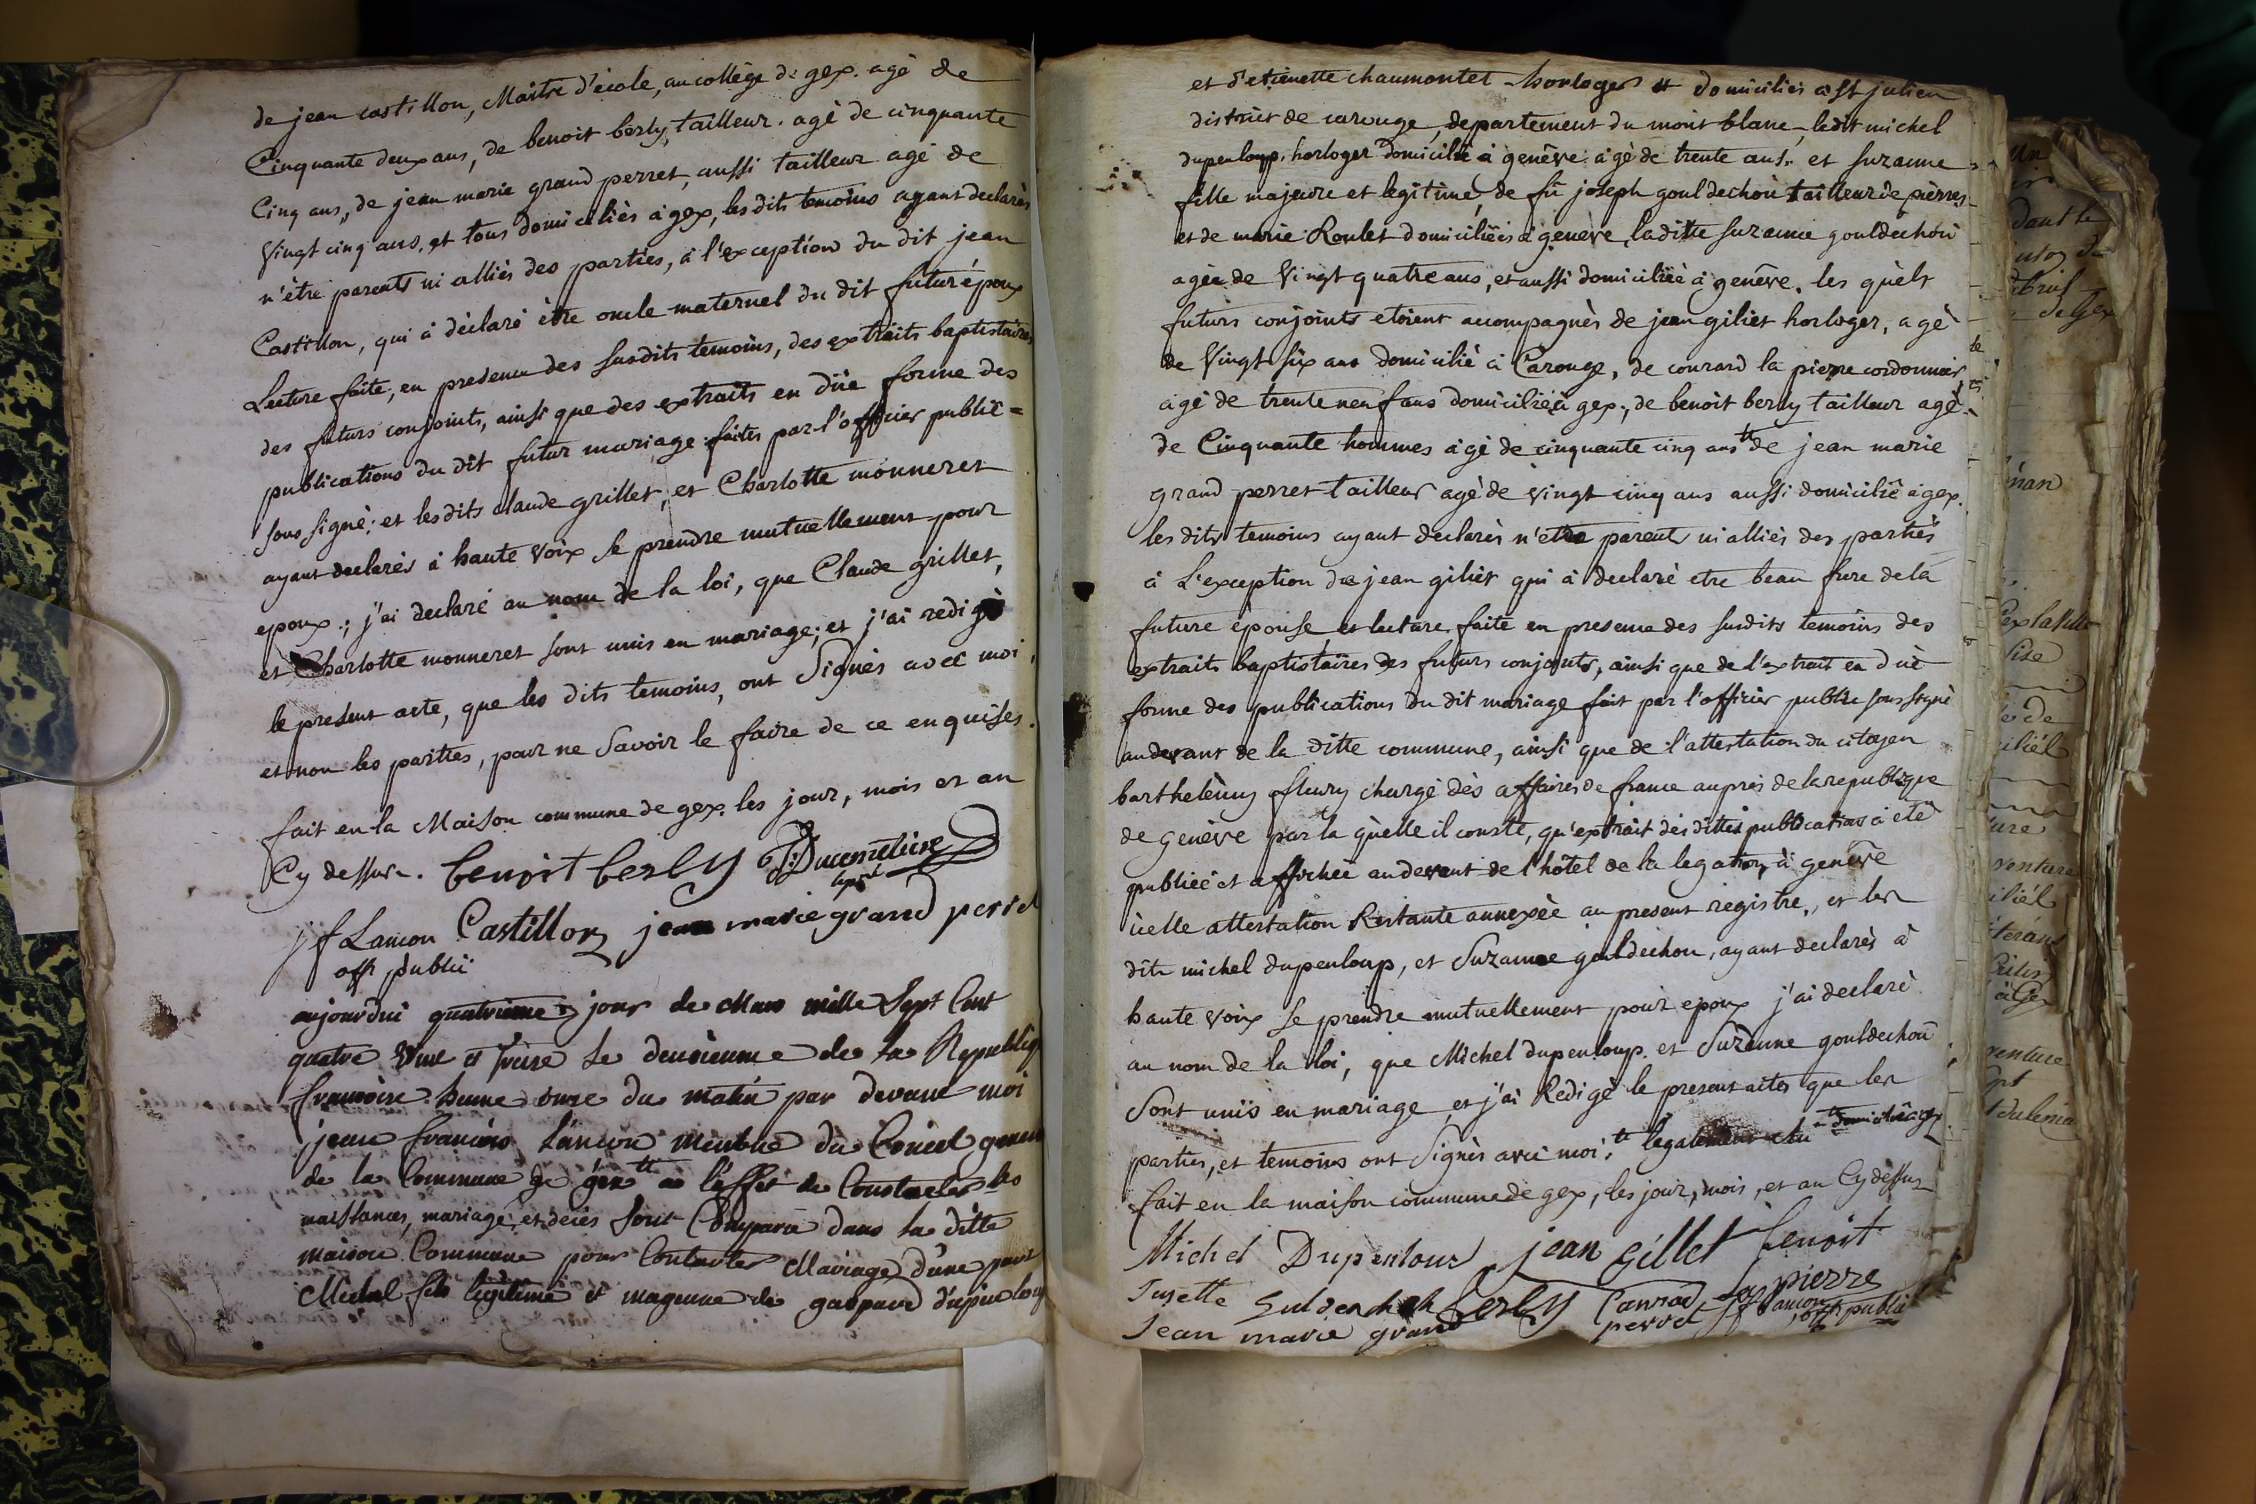 de jean castillon, Maitre d'école, au collège de gex. agé de
Cinquante deux ans, de benoit berly, tailleur. agé de cinquante
Cinq ans, de jean marie grand perret, aussi tailleur agé de
Vingt cinq ans. et tous domiciliés à gex, les dits temoins ayant declarés
n'être parents ni alliés des parties, à l'exception du dit jean
Castillon, qui à déclaré être oncle maternel du dit futur époux
Lecture faite, en presence des susdits temoins, des extraits baptistaires
des futurs conjoints, ainsi que des extraits en düe forme des
publications du dit futur mariage faites par l'officier public =
sous signé; et lesdits claude grillet, et Charlotte monneret
ayant declarés à haute voix se prendre mutuellement pour
epoux; j'ai declaré au nom de la loi, que Claude grillet,
et Charlotte monneret sont unis en mariage; et j'ai redigé
le present acte, que les dits temoins, ont Signés avec moi,
et non les parties, pour ne Savoir le faire de ce enquises.
fait en la Maison commune de gex. les jour, mois et an
Cy dessus. benoit berly
jf Lancon Castillon jean marie grand perret
off public
aujourdui quatrieme jour de Mars mille Sept Cent
quatre vint et treise le deuxieume de la Republiq
francoise heure onze du matin par devant moi
jean francois Lancon membre du Conseil general
de la Commune de gex tt a l'effet de Constater les
naissances, mariage, et deces sont Comparu dans la ditte
maison Commune pour Contracter Mariage d'une part
Michel fils legitime et majeure de gaspard dupenloup
et d'etienette chaumontet - horloger et domiciliés à st julien
district de carouge, departement du mont blanc, ledit michel
dupenloup, horloger domicilié à genève agé de trente ans. et suzanne
fille majeure et legitime, de fü joseph gouldechou tailleur de pierres
et de marie Roulet domiciliées à genève, laditte suzanne gouldechou
agée de Vingt quatre ans, et aussi domiciliée à genève. les quels
futurs conjoints etoient accompagnés de jean giliet horloger, agé
de Vingt six ans domicilié à Carouge, de conrard la pierre cordonnier
agé de trente neuf ans domicilié à gex, de benoit berly tailleur agé
de Cinquante hommes agé de cinquante cinq ans tt de jean marie
grand perret tailleur agé de vingt cinq ans aussi domicilié à gex.
les dits temoins ayant declarés n'etre parents ni alliés des parties
à L'exception de jean giliet qui à declaré etre beau frere de la
future épouse, et lecture faite en presence des susdits temoins des
extraits baptistaires des futurs conjoints, ainsi que de l'extrait en düe
forme des publications du dit mariage fait par l'officier public sous signé
au devant de la ditte commune, ainsi que de l'attestation du citoyen
barthelèmy fleury chargé dès affaires de france auprès de la republique
de genève par la quelle il conste, qu'extrait des dittes publications à été
publiée et affichée au devant de l'hôtel de la legation, à genève
icelle attestation Restante annexée au present registre, et les
dits michel dupenloup, et Suzanne gouldechou, ayant declarés à
haute voix se prendre mutuellement pour epoux j'ai declaré
au nom de la loi, que Michel dupenloup et Suzanne gouldechou
Sont unis en mariage et j'ai Redigé le present acte que les
parties, et temoins ont Signés avec moi,
fait en la maison commune de gex, les jour, mois, et an Cy dessus
Michel Dupenloup jean Gillet benoit
Susette Guldenchoh berly Conrad La pierre
Jean marie grand perret jf Lancon off public